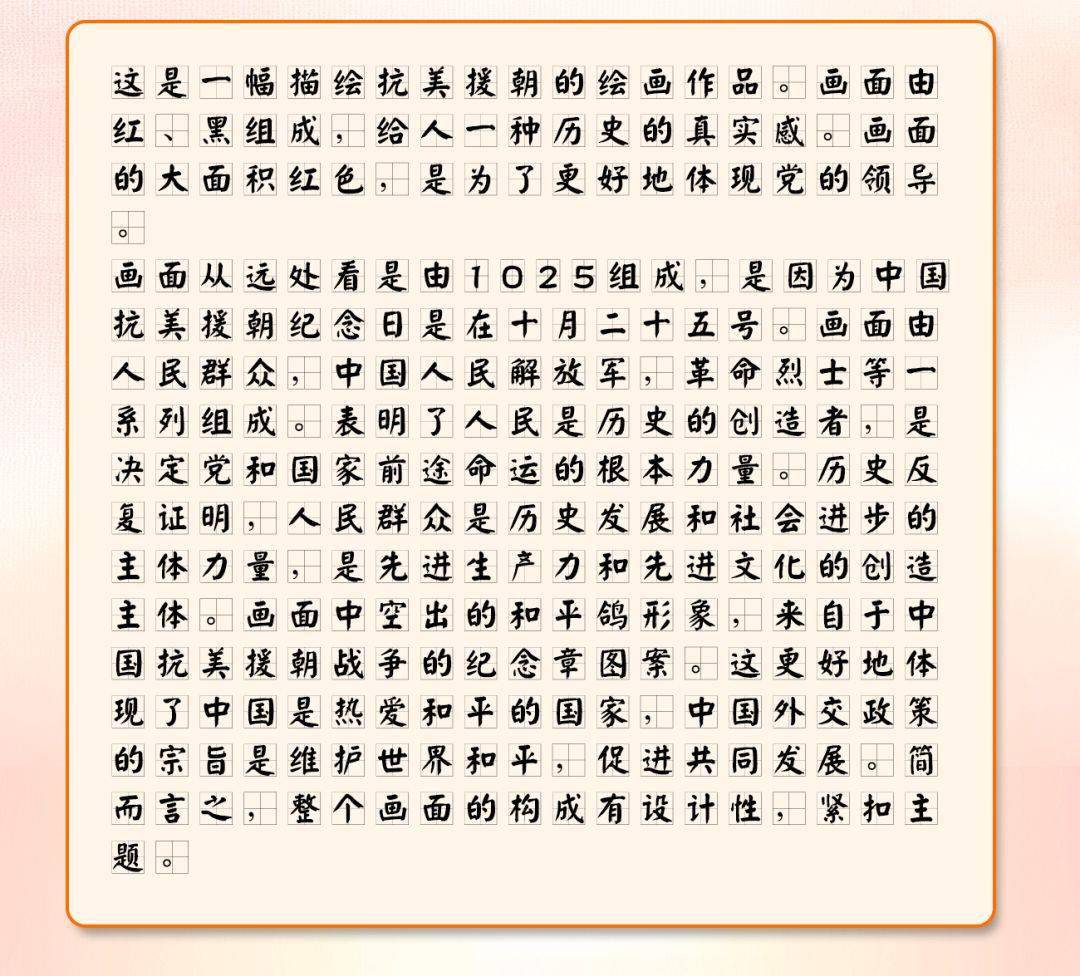 这是一幅描绘抗美援朝的绘画作品。画面由
红、黑组成，给人一种历史的真实感。画面
的大面积红色，是为了更好地体现党的领导
。
画面从远处看是由1025组成，是因为中国
抗美援朝纪念日是在十月二十五号。画面由
人民群众，中国人民解放军，革命烈士等一
系列组成。表明了人民是历史的创造者，是
决定党和国家前途命运的根本力量。历史反
复证明，人民群众是历史发展和社会进步的
主体力量，是先进生产力和先进文化的创造
主体。画面中空出的和平鸽形象，来自于中
国抗美援朝战争的纪念章图案。这更好地体
现了中国是热爱和平的国家，中国外交政策
的宗旨是维护世界和平，促进共同发展。简
而言之，整个画面的构成有设计性，紧扣主
题。